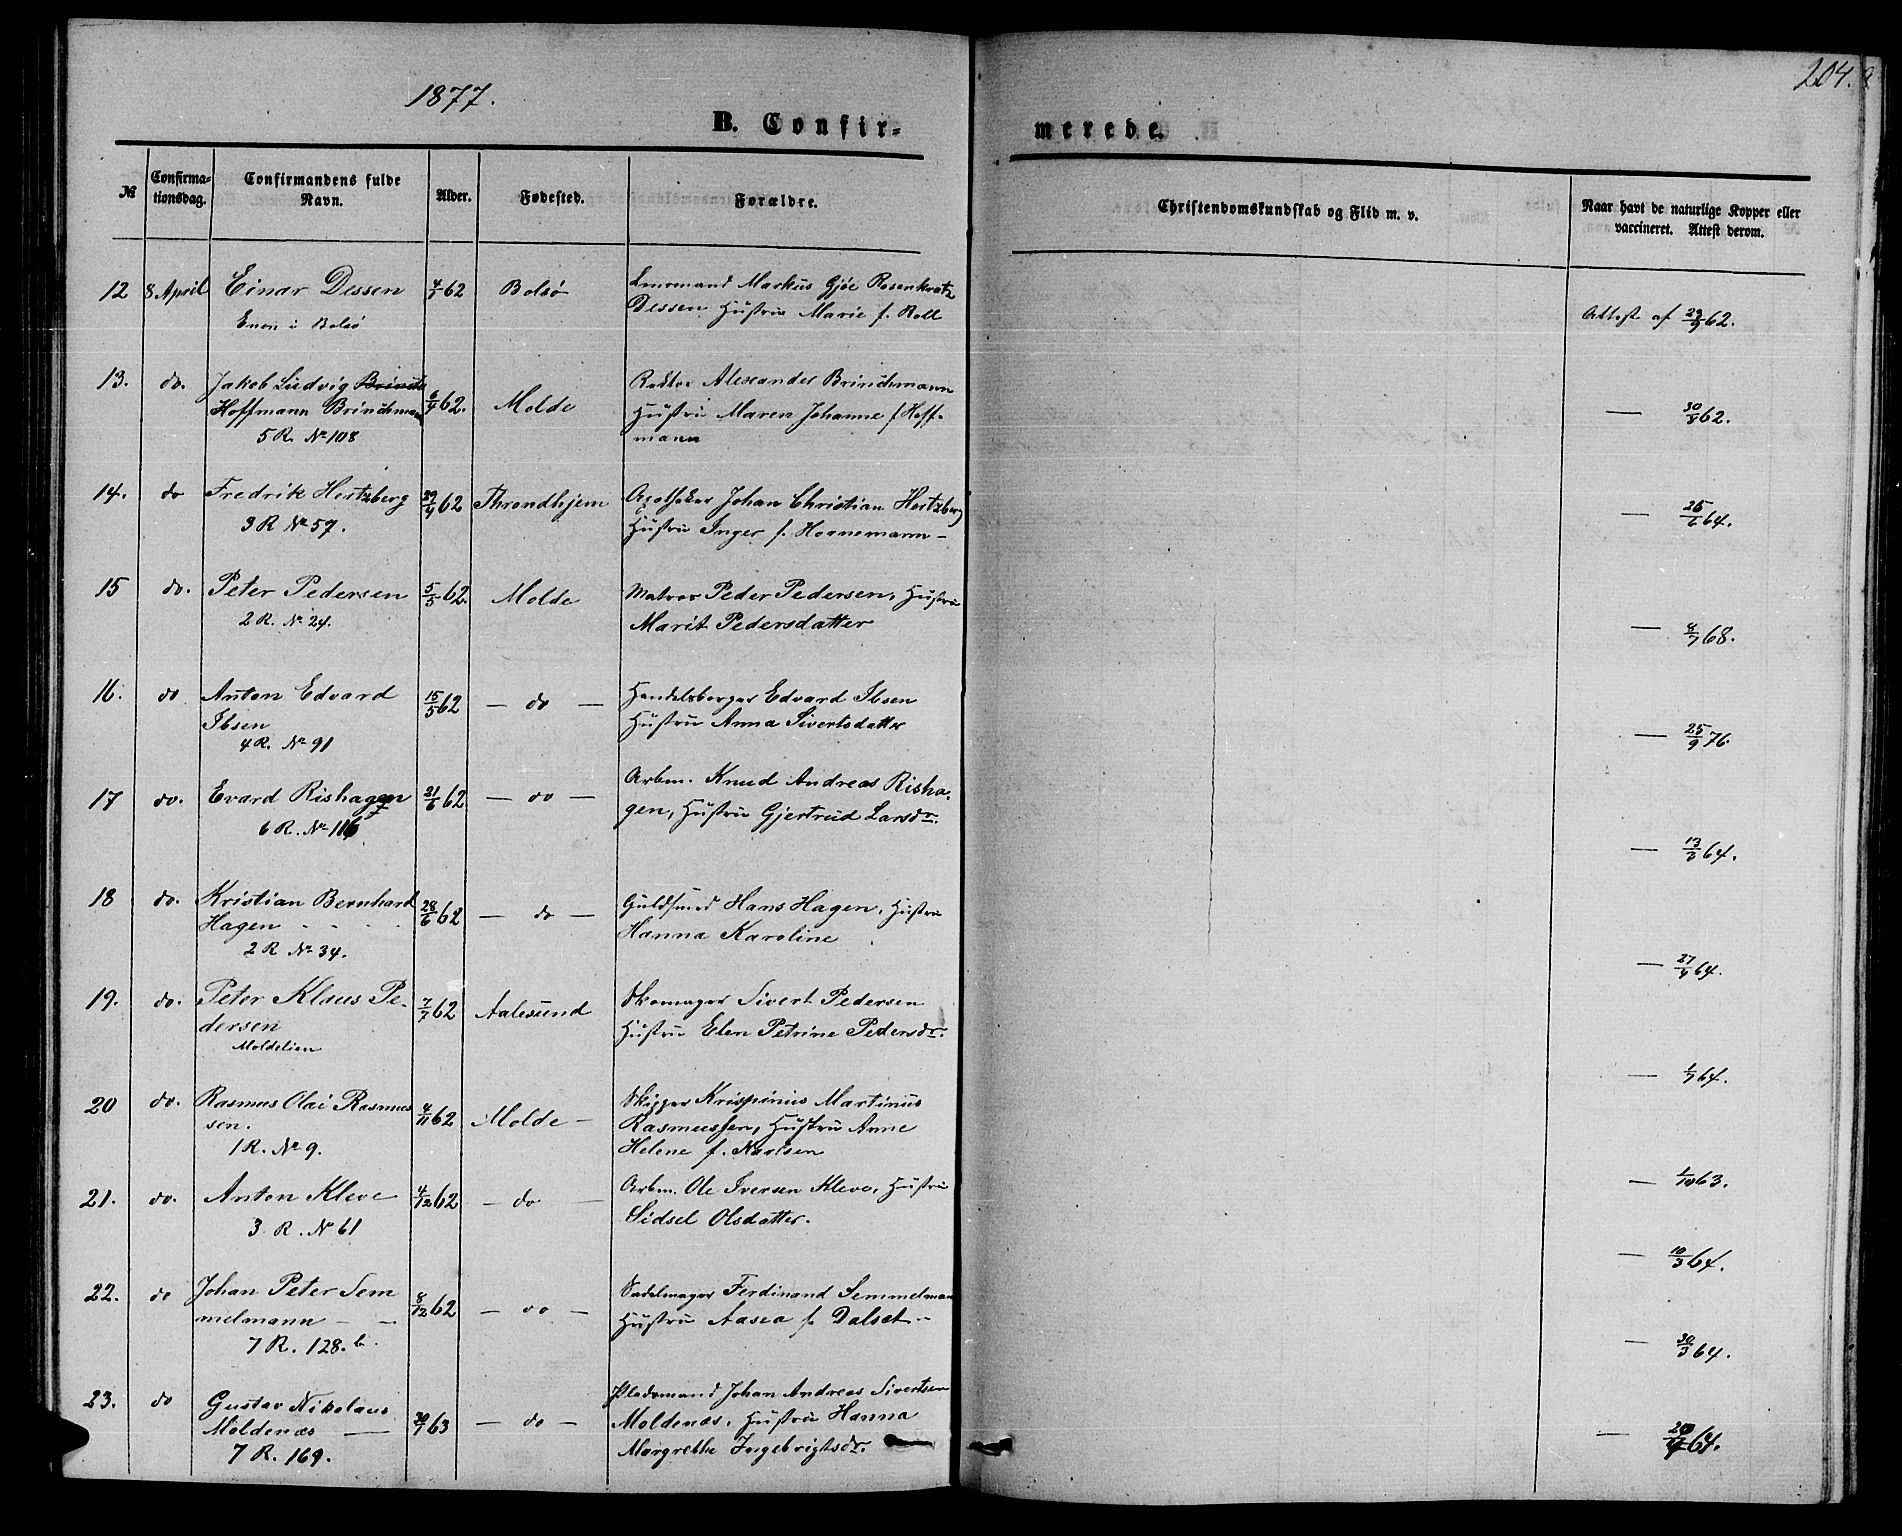 1877.
204.
B. Confir-
merede.
№
Confirma-
tionsdag.
Confirmandens fulde
Navn.
Alder.
Fødested.
Forældre.
Christendomskundskab og Flid m. v.
Naar havt de naturlige Kopper eller
vaccineret. Attest derom.
12 8 April Einar Dessen 62 Bolsø Markus Gjöe Rosenkratz
Dessen Hustru Marie f. Roll
i Bolsø
Attest af 29/9 62.
13. do. Jakob Ludvig Brinch
Hoffmann Brinchmann 62. Molde
5 R. № 108
Rektor Alexander Brinchmann
Hustru Maren Johanne f Hoff-
mann
— 30/8 62.
14. do Fredrik Hertzberg 29/4 62 Throndhjem
3 R № 57.
Apotheker Johan Christian Hertzberg
Hustru Inger f. Hornemann —
— 64.
15 do. Peter Pedersen 5/5 62. Molde
2 R. № 24.
Matros Peder Pedersen, Hustru
Marit Pedersdatter
— 8/7 68.
16. do Anton Edvard
Ibsen 15/5 62 — do —
4 R. № 91
Handelsborger Edvard Ibsen
Hustru Anna Sivertsdatter
— 25/9 76.
17 do. Evard Rishagen 21/6 62 — do —
6 R. № 116
Arbm. Knud Andreas Risha-
gen, Hustru Gjertrud Larsdr.
— 13/3 64.
18 do. Kristian Bernhard
Hagen 28/6 62 — do —
2 R № 34.
Guldsmed Hans Hagen, Hustru
Hanna Karoline
— 27/4 64.
19. do. Peter Klaus Pe-
dersen 7/7 62 Aalesund
Moldelien
Skomager Sivert Pedersen
Hustru Elen Petrine Pedersdr.
— 1/7 64.
20 do. Rasmus Olai Rasmus
sen. 4/11 62 Molde —
1 R. № 9.
Skipper Krispinus Martinus
Rasmussen, Hustru Anne
Helene f. Karlsen
— 1/10 63.
21. do. Anton Kleve 4/12 62 — do —
3 R. № 61
Arbm. Ole Iversen Kleve, Hustru
Sidsel Olsdatter.
— 10/3 64.
22. do Johan Peter Sem
melmann — — 8/12 62 — do —
7 R. 128. b.
Sadelmager Ferdinand Semmelman
Hustru Aasea f. Dalset —
— 30/3 64.
23. do Gustav Nikolaus
Moldenæs — 63 — do —
7 R. 169.
Pladsmand Johan Andreas Sivertsen
Moldenæs, Hustru Hanna
Margrethe Ingebrigtsdr.
— 64.